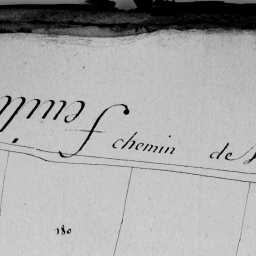 feuille
chemin de
180